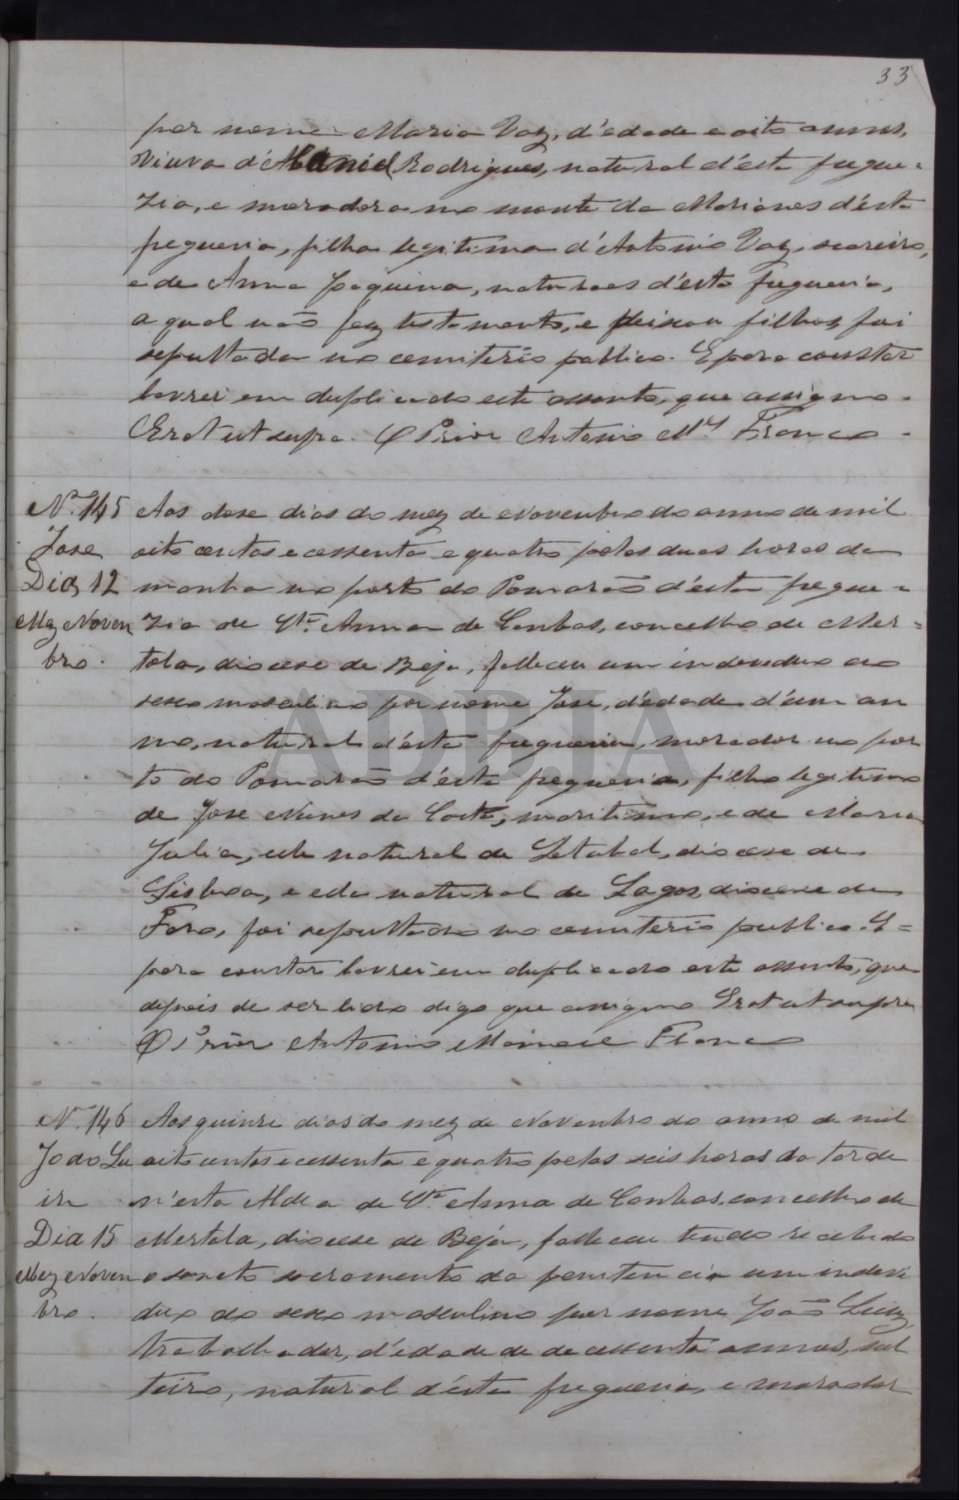 33
por nome Maria Vaz, d'edade e oito annos,
Viuva d'Manoel Rodrigues, natural d'esta fregue-
zia, e moradora no monte da Marianes d'ésta
fregueria, filha legitima d'Antonio Vaz, seareiro,
e de Anna Joaquina, naturaes d'ésta fregueria,
a qual não fez testamento, e deixou filhos, foi
sepultada no cemiterio publico. E para constar
lavrei em duplicado este assento, que assigno.
Erat ut supra. O Prior Antonio M.el Franco
Nº 145
Jose
Dia 12
Mez Novem
bro.
Aos dose dias do mez de Novembro do anno de mil
oito centos e cessenta e quatro pelas duas horas da
manha no porto do Pomarão d'ésta fregue-
zia de Stª Anna de Cambas, concelho de Mer=
tola, diocese de Beja, falleceu um individuo do
sexo masculino por nome Jose, d'édade d'um an
no, natural d'ésta fregueria, morador no por
to do Pomarão d'ésta fregueria, filho legitimo
de Jose Nunes da Costa, maritimo, e de Maria
Julia, elle natural de Setubal, diocese de
Lisboa, e ella natural de Lagos, diocese de
Faro, foi sepultado no cemiterio publico. E=
para constar lavrei em duplicado este assento, que
depois de ser lido digo que assigno Erat ut supra
O Prior Antonio Manoel Franco
Nº 146
João Lu
iz
Dia 15
Mez Novem
bro.
Aos quinze dias do mez de Novembro do anno de mil
oito centos e cessenta e quatro pelas seis horas da tarde
n'ésta Aldea de Stª Anna de Cambas, concelho de
Mertola, diocese de Béja, falleceu tendo recebido
o sancto sacramento da penitencia um indevi
duo do sexo masculino por nome João Luiz,
trabalhador, d'édade de cessenta annos, sol
teiro, natural d'ésta fregueria, e morador
ADBJA